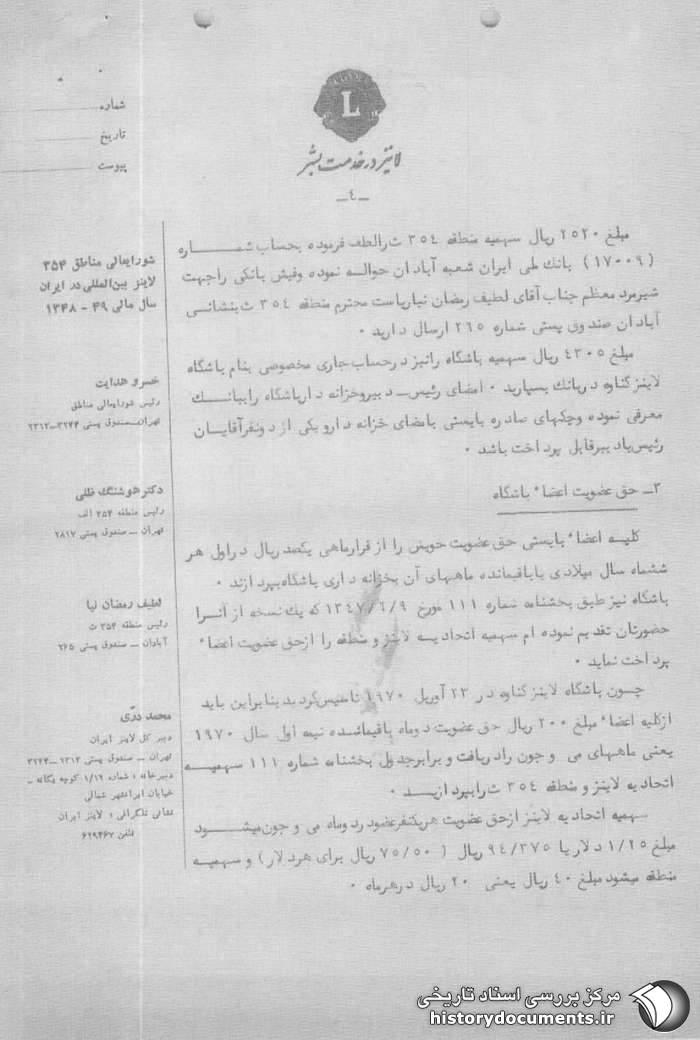 L
لاینز در خدمت بشر
-٤-
شماره
تاریخ
پیوست
شورایعالی مناطق ۳۵۴
لاینز بین‌المللی در ایران
سال مالی ۴۹ - ۱۳۴۸
خسرو هدایت
رئیس شورایعالی مناطق
تهران_صندوق پستی ۳۲۴۴_۲۳۱۲
دکتر هوشنگ ظلی
رئیس منطقه ۳۵۴ الف
تهران _ صندوق پستی ۲۸۱۷
لطیف رمضان نیا
رئیس منطقه ۳۵۴ ث
آبادان _ صندوق پستی ۲۶۵
محمد درّی
دبیر کل لاینز ایران
تهران _ صندوق پستی ۲۳۱۲_۳۲۴۴
دبیرخانه : شماره ۱/۱۲ کوچه یگانه _
خیابان ایرانشهر شمالی
نشانی تلگرافی : لاینز ایران
تلفن ۶۲۹۴۶۷
مبلغ ۲۵۲۰ ریال سهمیه منطقه ۳۵٤ ث را لطف فرموده بحساب شماره
( ۱۷۰۰۹ ) بانك ملی ایران شعبه آبادان حواله نموده وفیش بانکی را جهت
شیرمرد معظم جناب آقای لطیف رمضان نیا ریاست محترم منطقه ۳۵٤ ث بنشانی
آبادان صندوق پستی شماره ۲٦۵ ارسال دارید ۰
مبلغ ٤۳۰۵ ریال سهمیه باشگاه را نیز در حساب جاری مخصوصی بنام باشگاه
لاینز گناوه در بانك بسپارید ۰ امضای رئیس _ دبیر و خزانه دار باشگاه را ببانك
معرفی نموده و چکهای صادره بایستی بامضای خزانه دار و یکی از دو نفر آقایان
رئیس یا دبیر قابل پرداخت باشد ۰
۳_ حق عضویت اعضاء باشگاه
کلیه اعضاء بایستی حق عضویت خویش را از قرار ماهی یکصد ریال در اول هر
ششماه سال میلادی یا باقیمانده ماههای آن بخزانه داری باشگاه بپردازند ۰
باشگاه نیز طبق بخشنامه شماره ۱۱۱ مورخ ۱۳٤۷/٦/۹ که یك نسخه از آنرا
حضورتان تقدیم نموده ام سهمیه اتحادیه لاینز و منطقه را از حق عضویت اعضاء
پرداخت نماید ۰
چون باشگاه لاینز گناوه در ۲۲ آوریل ۱۹۷۰ تاسیس گردید بنابراین باید
از کلیه اعضاء مبلغ ۲۰۰ ریال حق عضویت دوماه باقیمانده نیمه اول سال ۱۹۷۰
یعنی ماههای می و جون را دریافت و برابر جدول بخشنامه شماره ۱۱۱ سهمیه
اتحادیه لاینز و منطقه ۳۵٤ ث را بپردازید ۰
سهمیه اتحادیه لاینز از حق عضویت هر یکنفر عضو در دو ماه می و جون میشود
مبلغ ۱/۲۵ دلار یا ۹٤/۳۷۵ ریال ( ۷۵/۵۰ ریال برای هر دلار ) و سهمیه
منطقه میشود مبلغ ٤۰ ریال یعنی ۲۰ ریال در هر ماه ۰
مرکز بررسی اسناد تاریخی
historydocuments.ir